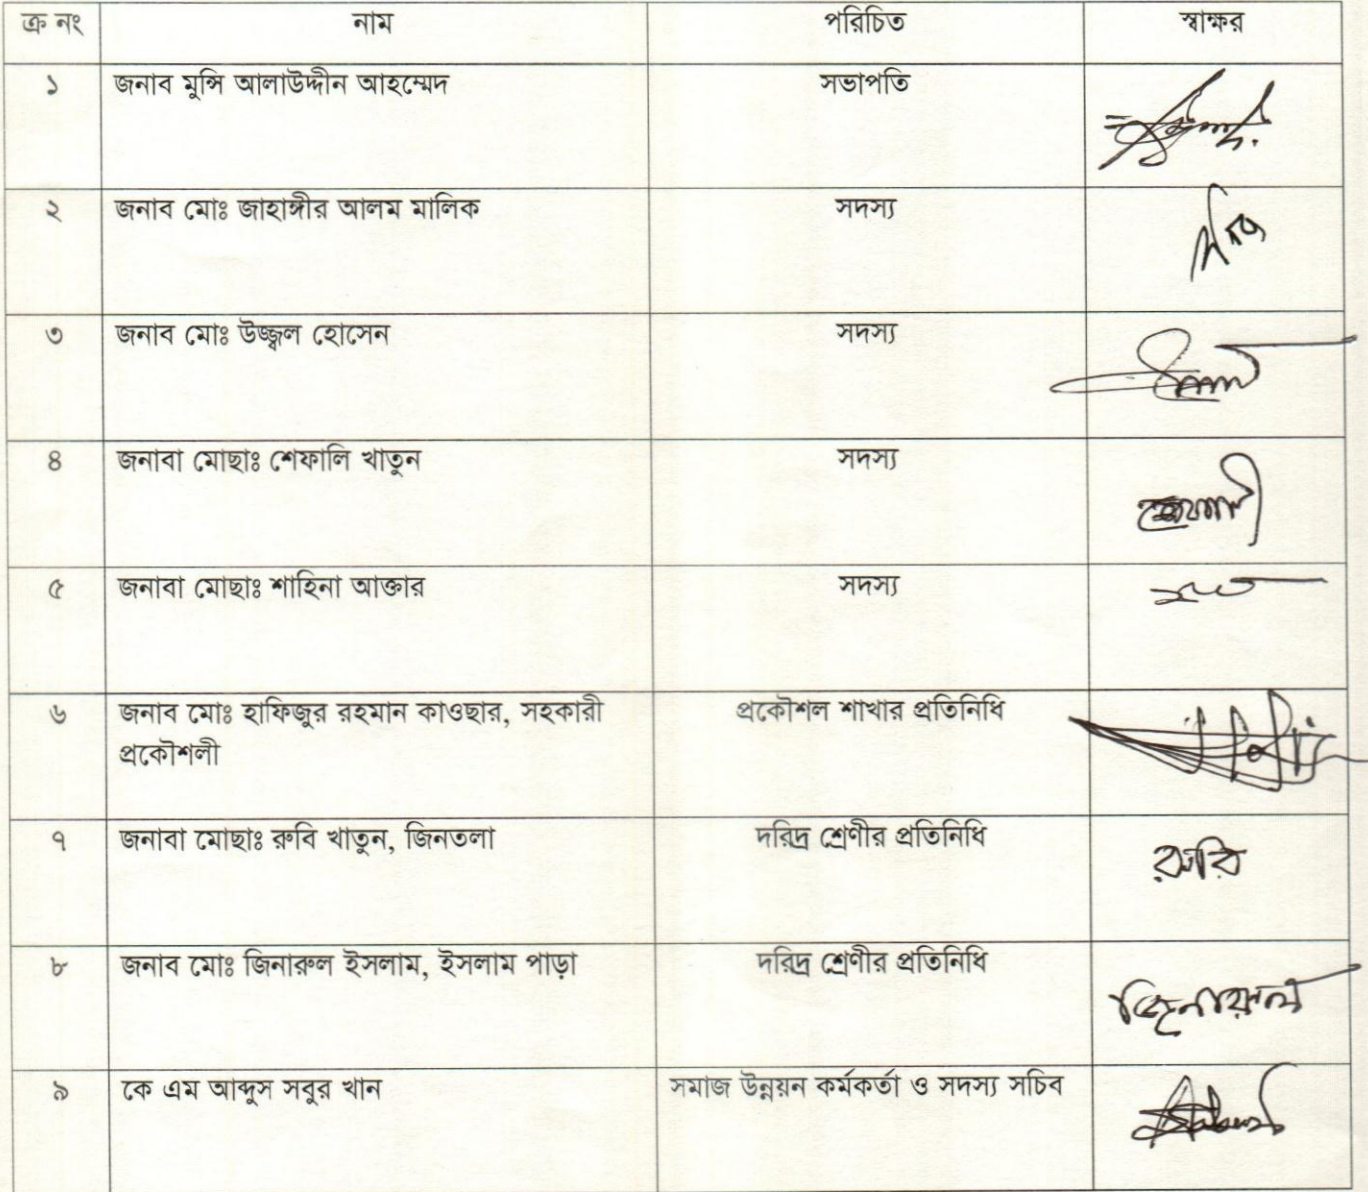 ক্র নং নাম পরিচিত স্বাক্ষর
১ জনাব মুন্সি আলাউদ্দীন আহম্মেদ সভাপতি
২ জনাব মোঃ জাহাঙ্গীর আলম মালিক সদস্য
৩ জনাব মোঃ উজ্জ্বল হোসেন সদস্য
৪ জনাবা মোছাঃ শেফালি খাতুন সদস্য
৫ জনাবা মোছাঃ শাহিনা আক্তার সদস্য
৬ জনাব মোঃ হাফিজুর রহমান কাওছার, সহকারী প্রকৌশল শাখার প্রতিনিধি
প্রকৌশলী
৭ জনাবা মোছাঃ রুবি খাতুন, জিনতলা দরিদ্র শ্রেণীর প্রতিনিধি রুবি
৮ জনাব মোঃ জিনারুল ইসলাম, ইসলাম পাড়া দরিদ্র শ্রেণীর প্রতিনিধি জিনারুল
৯ কে এম আব্দুস সবুর খান সমাজ উন্নয়ন কর্মকর্তা ও সদস্য সচিব